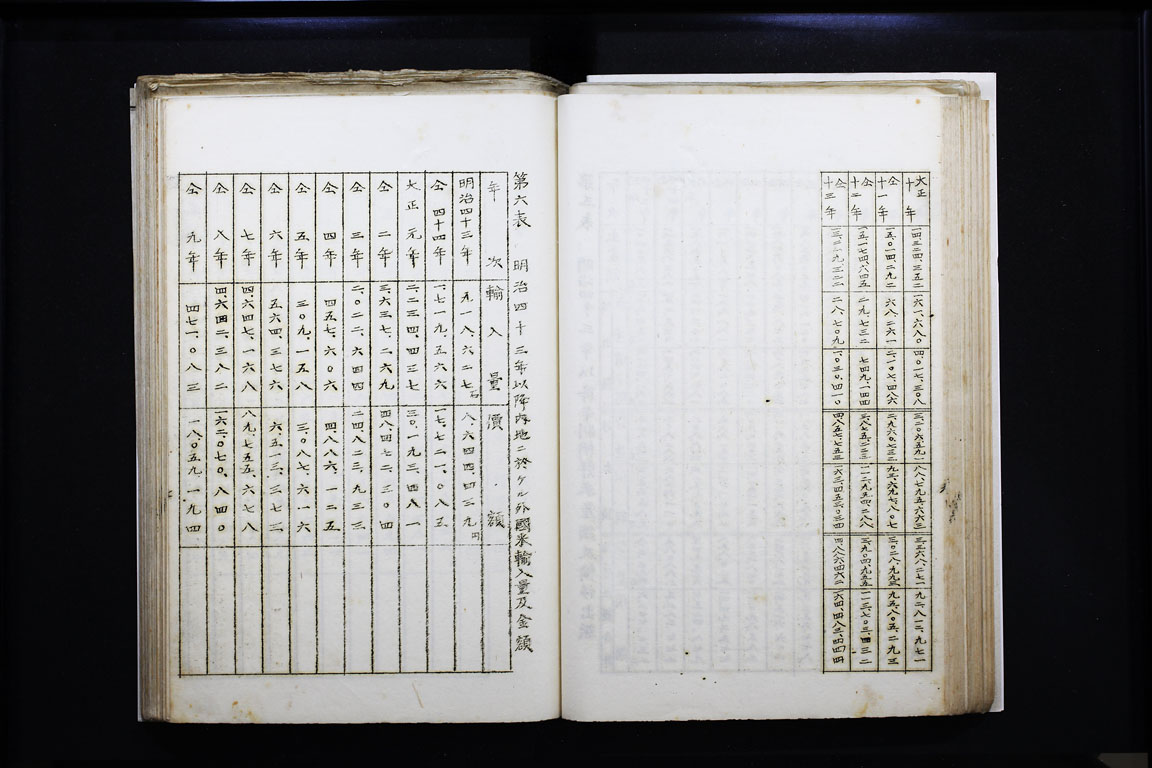 大正十年 一四、三二四、三五二 一六一、六八〇 四、〇一七、三〇八 三、二〇六、五九一 八八、七九五、六六三 三、三六八、二七一 九二、八一二、九七一
仝十一年 一五、〇一四、二九二 六八、二六一 二、一〇七、四八六 二、九六〇、七三二 九三、六九七、八〇七 三、〇二八、九九三 九五、八〇五、二九三
仝十二年 一五、一七四、六四五 二九、七三二 七四九、一四四 三、八七五、二二三 一一二、九五四、二八八 三、九〇四、九五五 一一三、七〇三、四三二
仝十三年 一三、二一九、三二二 二八、七〇九 一、〇三〇、四一〇 四、八五七、七五三 一六三、四五三、〇三四 四、八八六、四六二 一六四、四八三、四四四
第六表 明治四十三年以降内地ニ於ケル外國米輸入量及金額
年次 輸入量 價額
明治四十三年 九一八、六二七石 八、六四四、四三九円
仝 四十四年 一、七一九、五六六 一七、七二一、〇八五
大正 元年 二、二三四、四三七 三〇、一九三、四八一
仝 二年 三、六三七、二六九 四八、四七二、三〇四
仝 三年 二、〇二二、六四四 二四、八二三、九三三
仝 四年 四五七、六〇六 四、八八六、一二五
仝 五年 三〇九、一五八 三、〇八七、六一六
仝 六年 五六四、三七六 六、五一三、三七三
仝 七年 四、六四七、一六八 八九、七五五、六七八
仝 八年 四、六四二、三八二 一六二、〇七〇、八四〇
仝 九年 四七一、〇八三 一八、〇五九、一九四